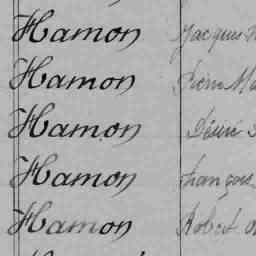 Hamon Jacques
Hamon Pierre Ma
Hamon Désiré
Hamon François
Hamon Robert